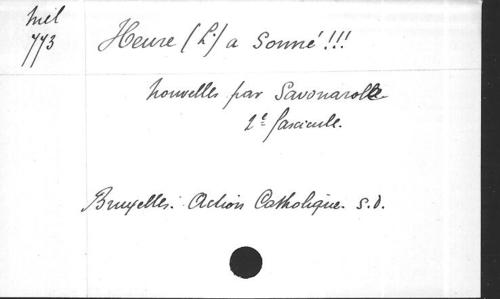 Mél
773
Heure (L') a Sonné!!!
Nouvelles par Savonarolle
2e fascicule.
Bruxelles. Action Catholique. S.D.